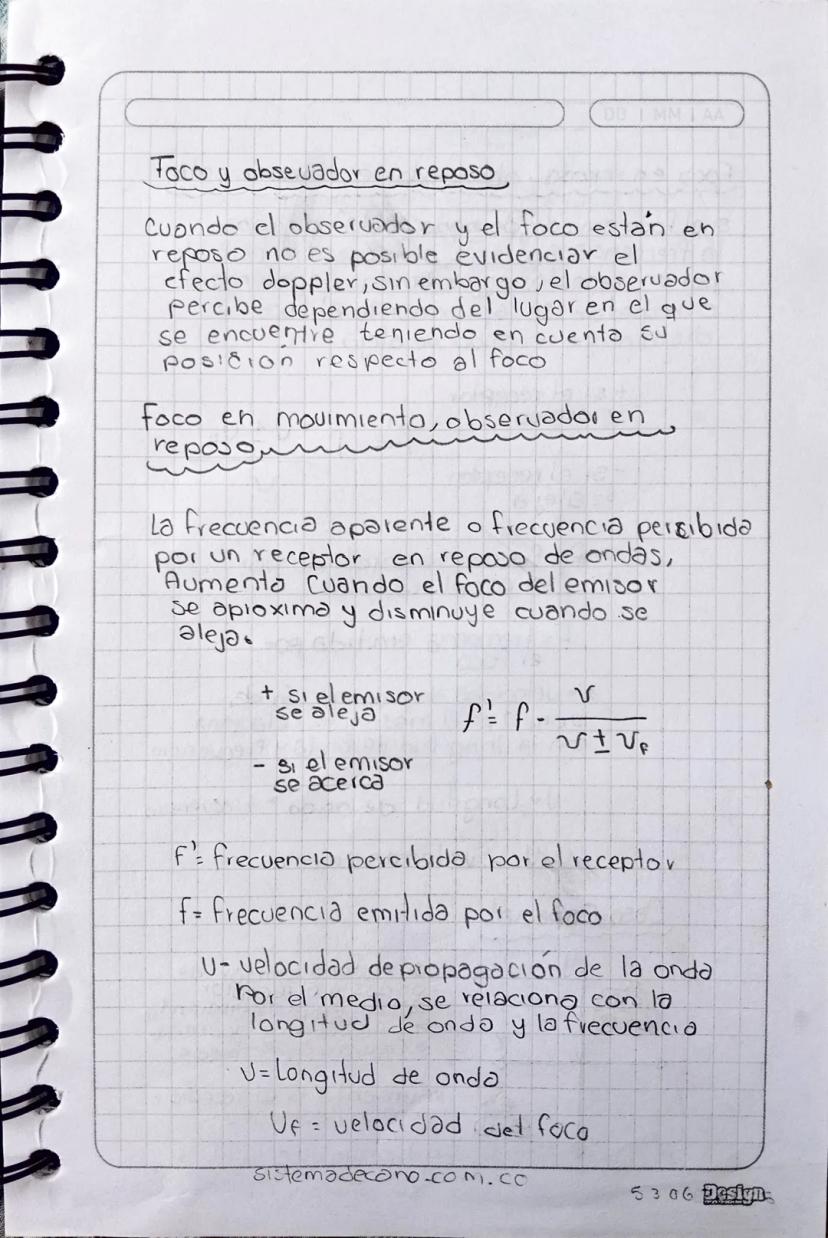 DD | MM | AA
Foco y obsevador en reposo
Cuando el observador y el foco están en
reposo no es posible evidenciar el
efecto doppler, sin embargo, el observador
percibe dependiendo del lugar en el que
se encuentre teniendo en cuenta su
posición respecto al foco
foco en movimiento, observador en
reposo
La frecuencia aparente o frecuencia percibida
por un receptor en reposo de ondas,
Aumenta cuando el foco del emisor
se aproxima y disminuye cuando se
aleja.
+ si el emisor
se aleja
f' = f · v / (v ± v_F)
- si el emisor
se acerca
f' = frecuencia percibida por el receptor
f = frecuencia emitida por el foco
v - velocidad de propagación de la onda
Por el medio, se relaciona con la
longitud de onda y la frecuencia
v = longitud de onda
V_F = velocidad del foco
sistemadecano.com.co
5306 Design